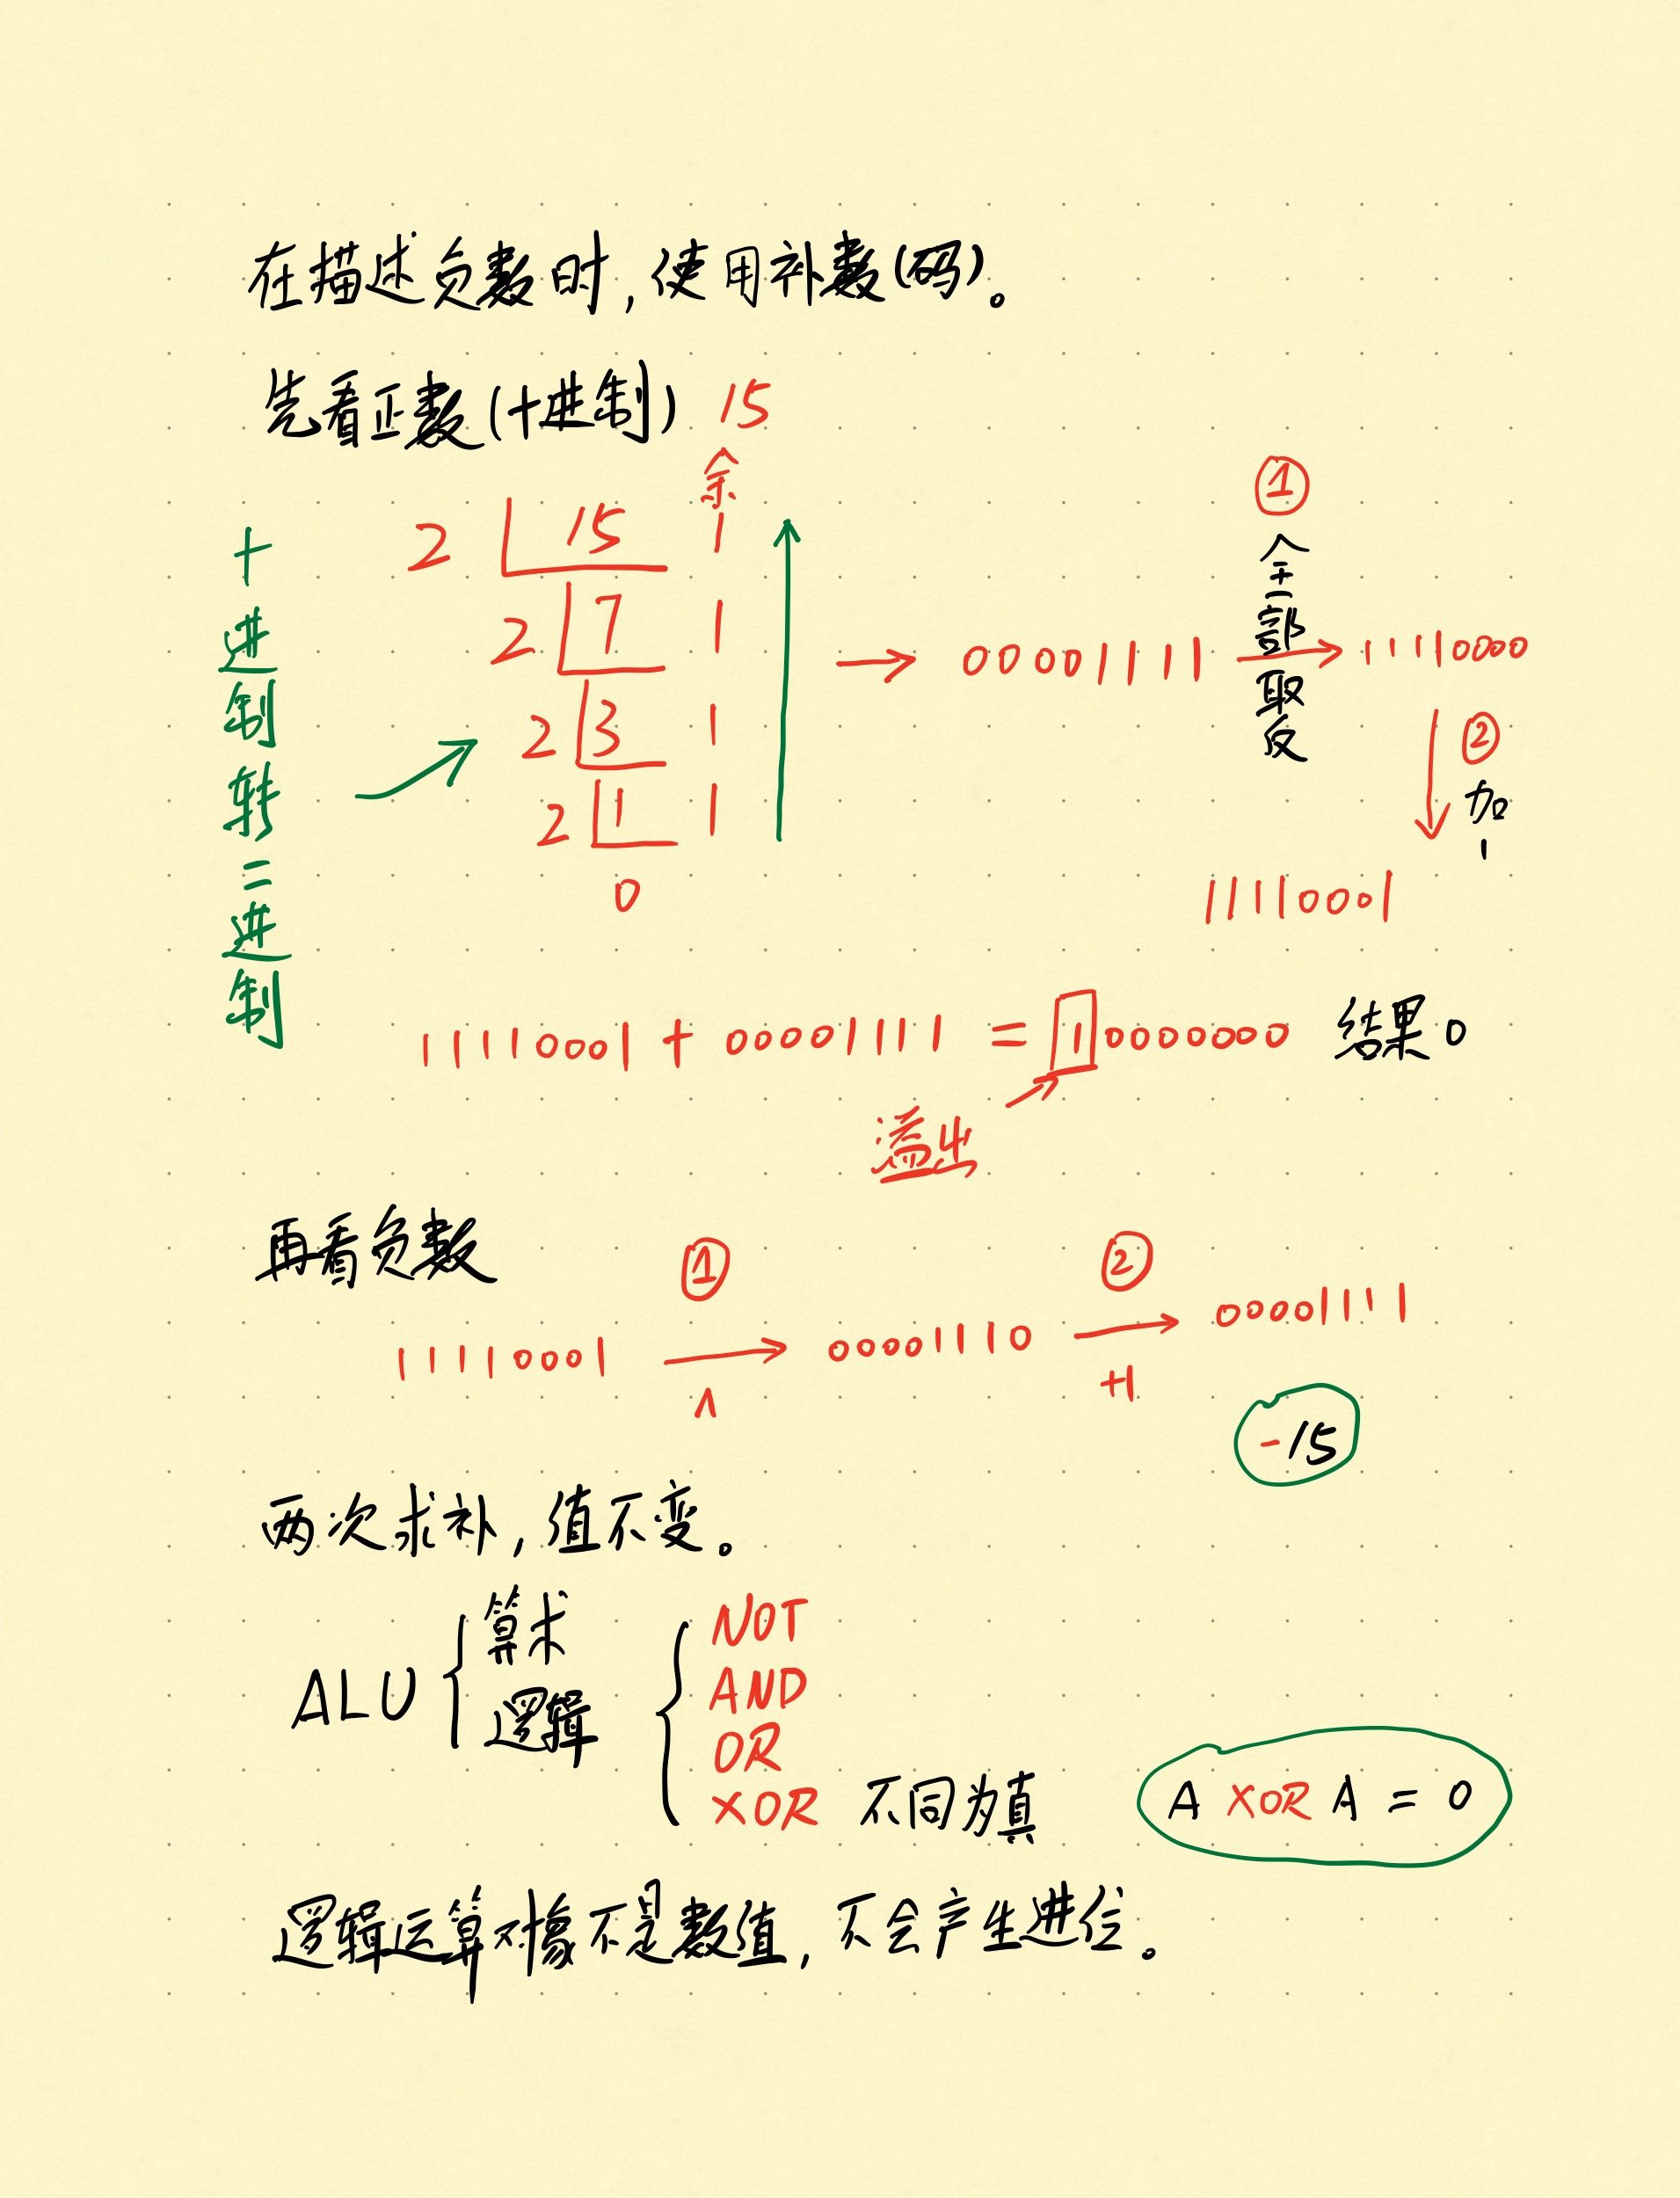 在描述负数时,使用补数(码)。
先看正数(十进制) 15
余
十进制转二进制
2 15 1
2 7 1
2 3 1
2 1 1
0
→ 00001111
① 全部取反 →
11110000
② 加1
11110001
11110001 + 00001111 = 100000000 结果0
溢出
再看负数
① ②
11110001 → 00001110 → 00001111
∧ +1
-15
两次求补,值不变。
ALU { 算术 逻辑 {
NOT
AND
OR
XOR 不同为真
A XOR A = 0
逻辑运算对像不是数值,不会产生进位。